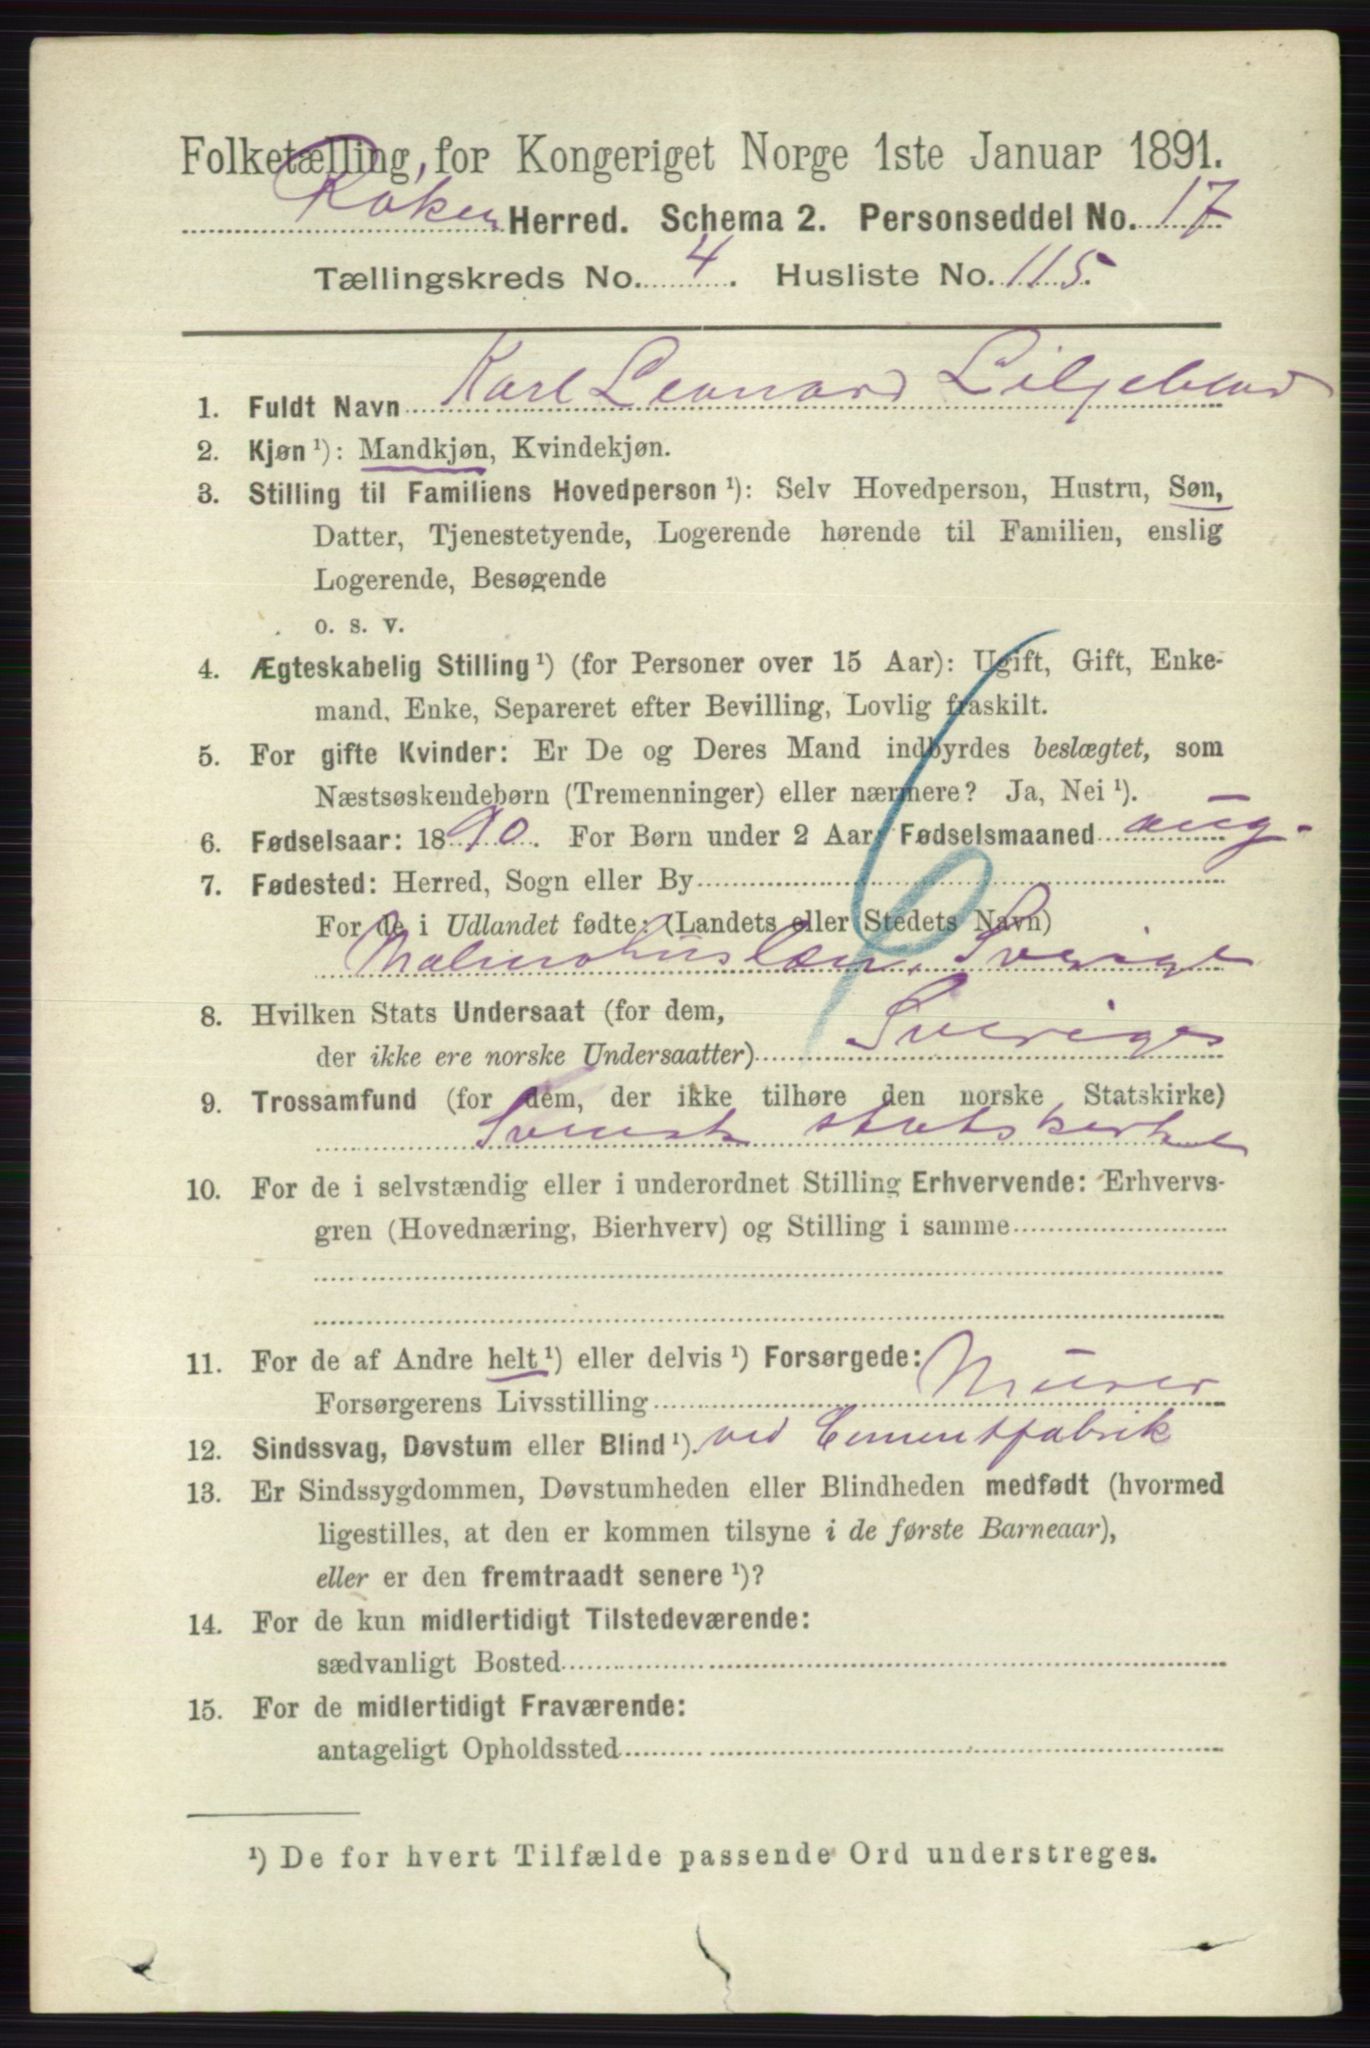 Folketælling for Kongeriget Norge 1ste Januar 1891.
Røken Herred. Schema 2. Personseddel No. 17
Tællingskreds No. 4. Husliste No. 115.
1. Fuldt Navn Karl Leonard Liljeblad
2. Kjøn ¹): Mandkjøn, Kvindekjøn.
3. Stilling til Familiens Hovedperson ¹): Selv Hovedperson, Hustru, Søn,
Datter, Tjenestetyende, Logerende hørende til Familien, enslig
Logerende, Besøgende
o. s. v.
4. Ægteskabelig Stilling ¹) (for Personer over 15 Aar): Ugift, Gift, Enke-
mand, Enke, Separeret efter Bevilling, Lovlig fraskilt.
5. For gifte Kvinder: Er De og Deres Mand indbyrdes beslægtet, som
Næstsøskendebørn (Tremenninger) eller nærmere? Ja, Nei ¹).
6. Fødselsaar: 1890. For Børn under 2 Aar: Fødselsmaaned aug.
7. Fødested: Herred, Sogn eller By
For de i Udlandet fødte: (Landets eller Stedets Navn)
Malmøhuslæn, Sverige
8. Hvilken Stats Undersaat (for dem,
der ikke ere norske Undersaatter) Sveriges
9. Trossamfund (for dem, der ikke tilhøre den norske Statskirke)
Svensk statskirke
10. For de i selvstændig eller i underordnet Stilling Erhvervende: Erhvervs-
gren (Hovednæring, Bierhverv) og Stilling i samme
11. For de af Andre helt ¹) eller delvis ¹) Forsørgede:
Forsørgerens Livsstilling Murer
12. Sindssvag, Døvstum eller Blind ¹). ved Cementfabrik
13. Er Sindssygdommen, Døvstumheden eller Blindheden medfødt (hvormed
ligestilles, at den er kommen tilsyne i de første Barneaar),
eller er den fremtraadt senere ¹)?
14. For de kun midlertidigt Tilstedeværende:
sædvanligt Bosted
15. For de midlertidigt Fraværende:
antageligt Opholdssted
¹) De for hvert Tilfælde passende Ord understreges.